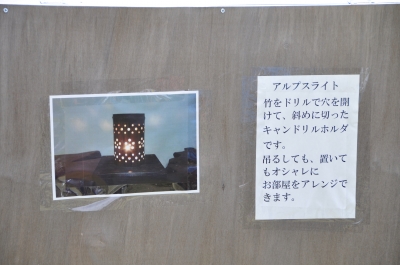 アルプスライト
竹をドリルで穴を開
けて、斜めに切った
キャンドリルホルダ
です。
吊るしても、置いて
もオシャレに
お部屋をアレンジで
きます。